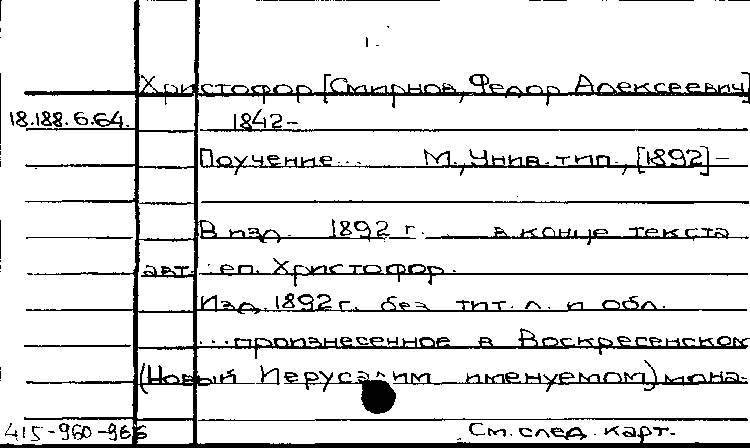 1.
Христофор [Смирнов, Федор Алексеевич]
18.188.6.64. 1842-
Поучение... М., Унив. тип., [1892]-
В изд. 1892 г. в конце текста
авт.: еп. Христофор.
Изд. 1892 г. без тит. л. и обл.
...произнесенное в Воскресенском
(Новый Иерусалим именуемом) мона-
415-960-966 См. след. карт.